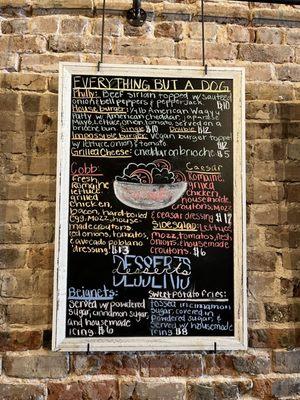 EVERYTHING BUT A DOG
Philly: Beef Sirloin topped w/ sauteed
onion, bell peppers & pepper Jack $10
House burger: 1/4 lb American Wagyu
patty w/ American cheddar, jalapeño
mayo, lettuce, onion & tomato served on a
brioche bun Single $10 Double $12
Impossible burger: vegan burger topped
w/ lettuce, onion & tomato $12
Grilled Cheese: cheddar on brioche $5
Cobb:
Fresh
Romaine
lettuce
grilled
chicken,
bacon, hard-boiled
egg, Mozz, house
made croutons,
red onions, tomato
& avocado poblano
dressing $13
Caesar
Romaine
lettuce,
grilled
chicken,
housemade
croutons, Mozz
& caesar dressing $12
Side salad: lettuce
mozz, tomato, fresh
onions & housemade
croutons. $6
SALADS
DESSERTS
desserts
DESSERTS
Beignets:
Served w/ powdered
sugar, cinnamon sugar,
and housemade
icing $6
Sweet potato fries:
tossed in cinnamon
sugar, covered in
powdered sugar &
served w/ housemade
icing $8